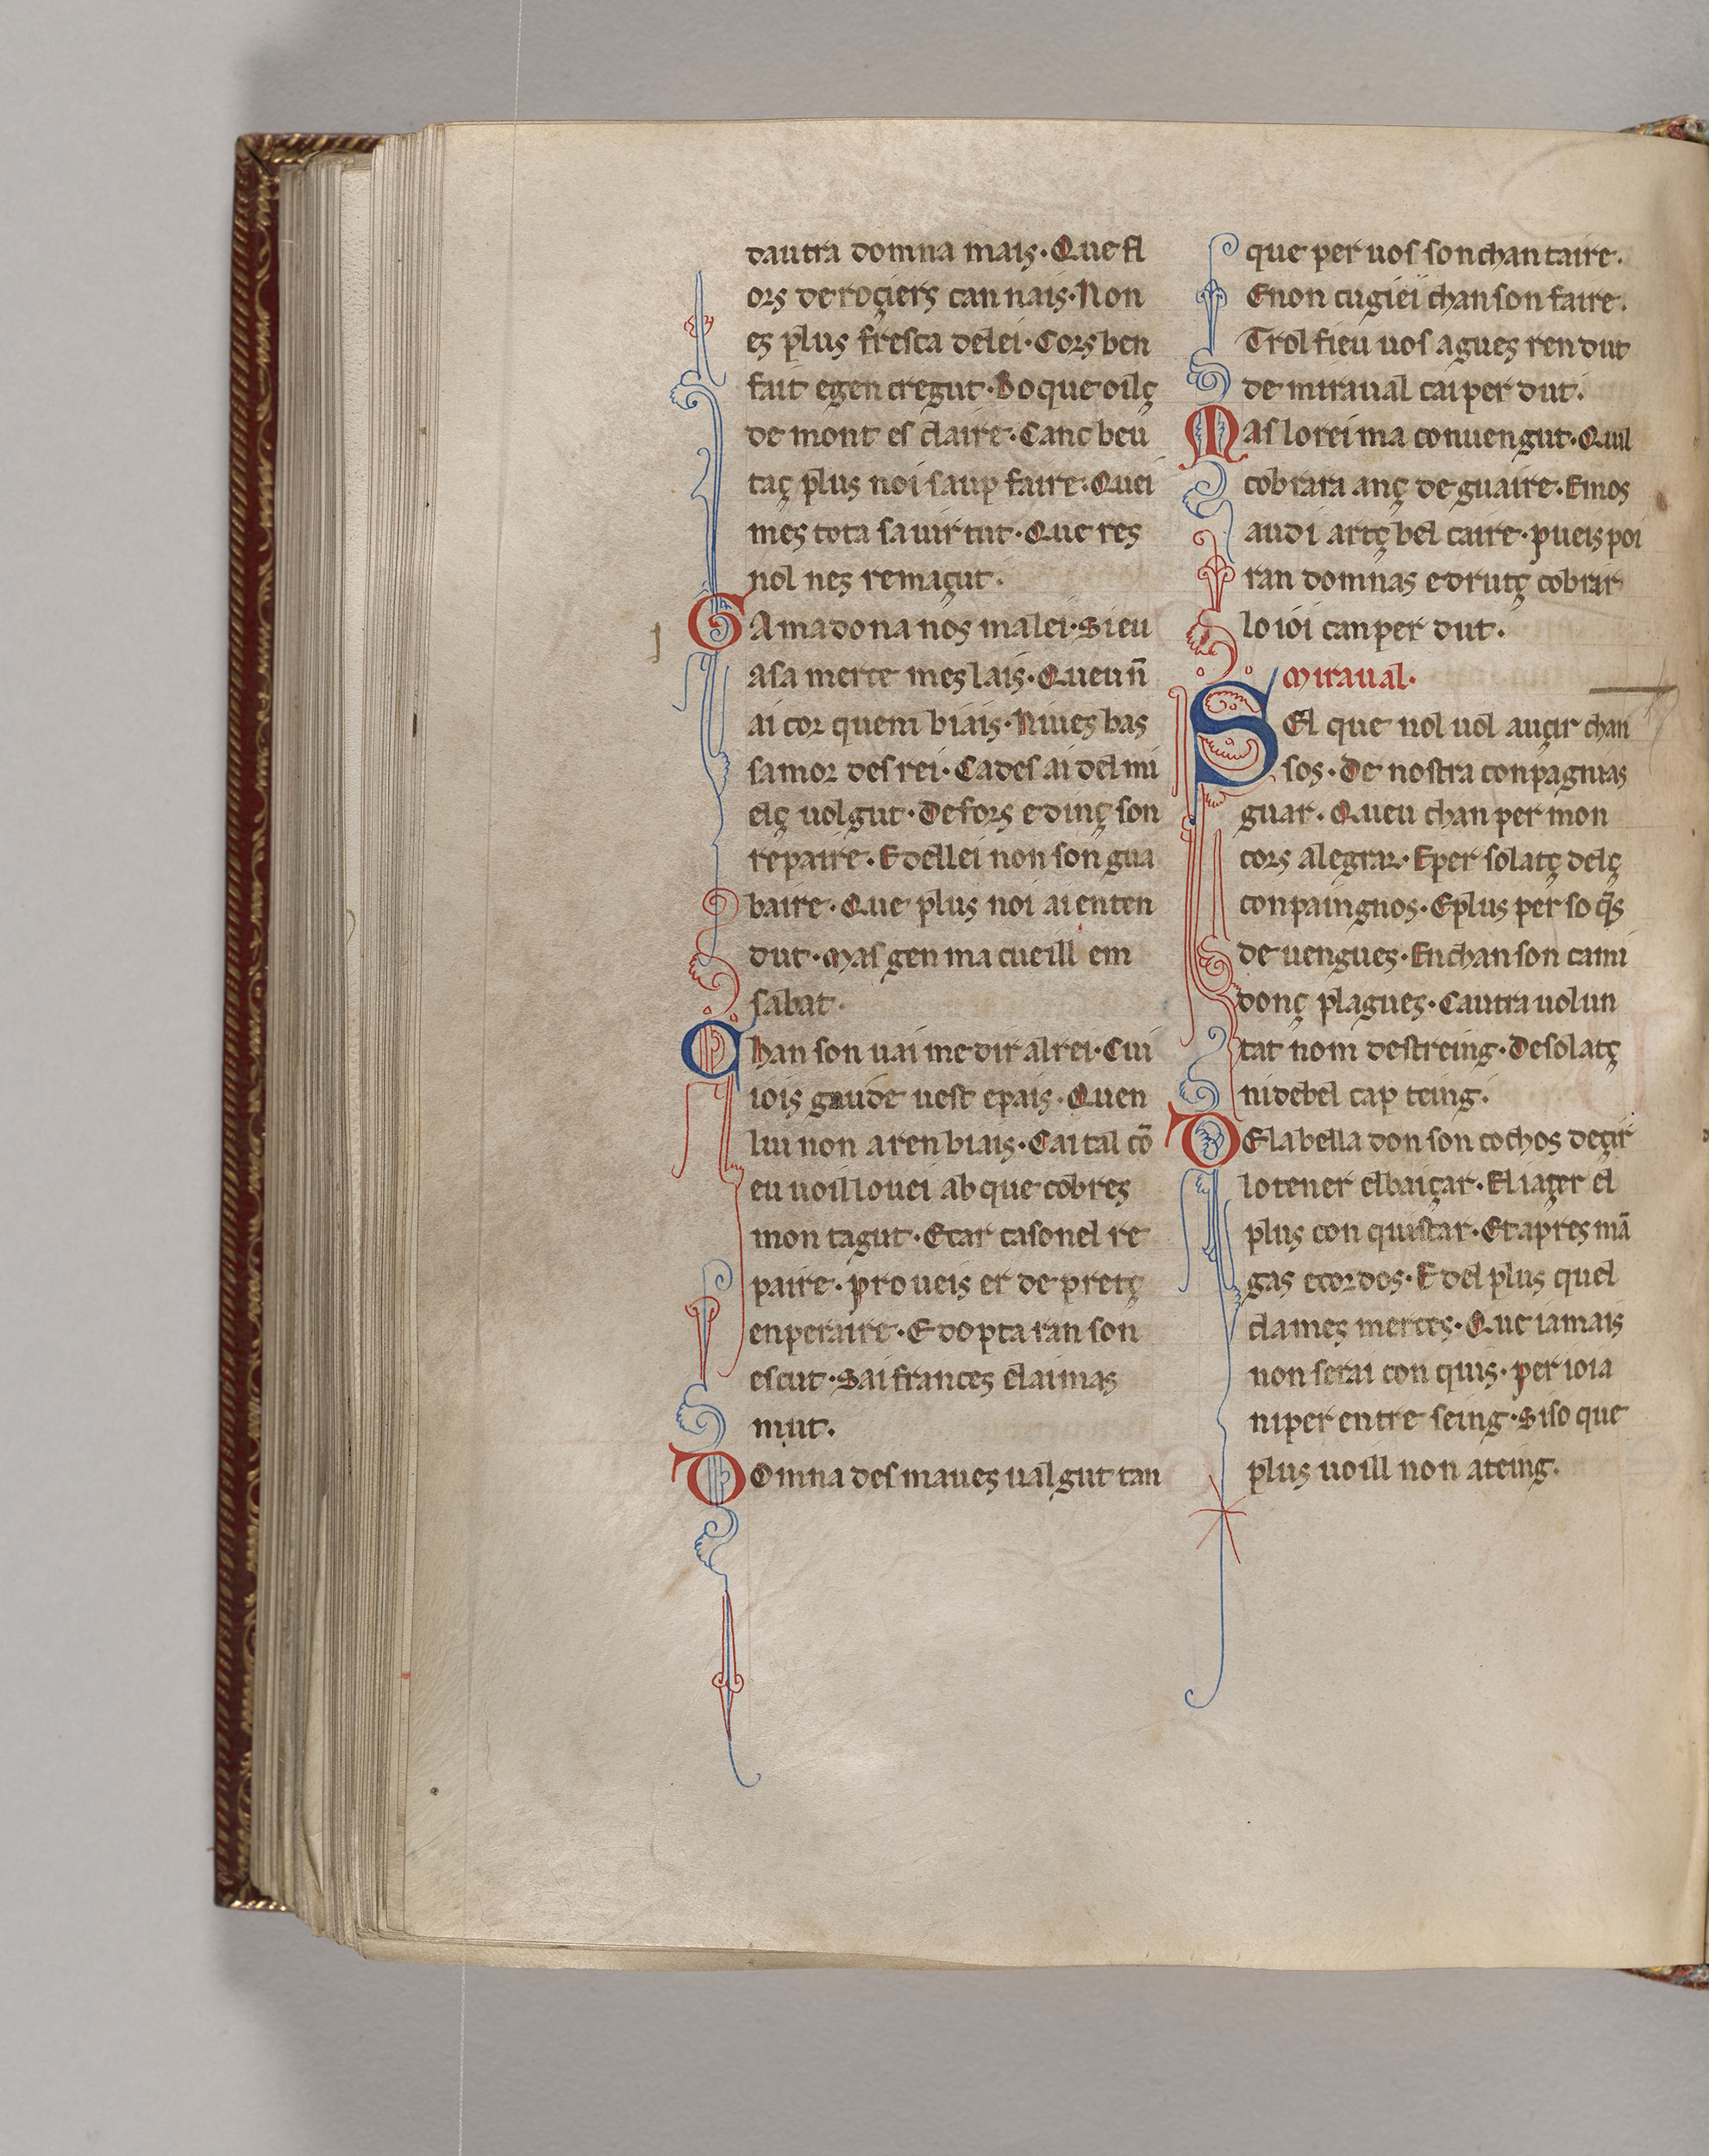 dautra domna mais · Que fl
ors de roçiers can nais · Non
es plus fresca delei · Cors ben
fait egen cregut · Boque oilç
de mont es claire · Canc beu
taç plus noi saup faire · Quei
mes tota sa uirtut · Que res
nol nes remaçut ·
GA ma dona nos malei · Si eu
asa merce mes lais · Queu ñ
ai cor quem biais · Niues bas
samor des rei · Cades ai del mi
elç uolgut · Defors e dinç son
repaire · E dellei non son gua
baire · Que plus noi ai enten
dut · Mas gen ma cueill em
sabat ·
Chan son uai me dir al rei · Cui
iois gaude uest epais · Quen
lui non aren biais · Cai tal cõ
eu uoill louei ab que cobres
mon tagut · Ecar casonel re
paire · pro ueis er de pretç
enperaire · E dopta ran son
escut · Sai frances elai mas
mut .
DOmna des maues ualgut tan
que per uos son chan taire .
Enon cugiei chanson faire .
Trol fieu uos agues ren dut
de miraual cai per dut .
Mas lo rei ma conuengut · Quil
cobrara anç de guaire · Emos
audi artç bel caire · pueis poi
ran domnas e drutç cobrar
lo ioi can per dut .
Miraual ·
SEl que nol uol auçir chan
sos · De nostra conpagnias
guar · Queu chan per mon
cors alegrar · Eper solatç delç
conpaingnos · Eplus per so q̃s
de uengues · En chanson cami
donç plagues · Cautra uolun
tat nom destreing · De solatç
ni debel cap teing .
DE la bella don son cochos deçir
lo tener el baiçar · El iaçer el
plus con quistar · Et apres mã
gas ecordos · E del plus quel
clames merces · Que iamais
non serai con quis · per ioia
ni per entre seing · Si so que
plus uoill non ateing .